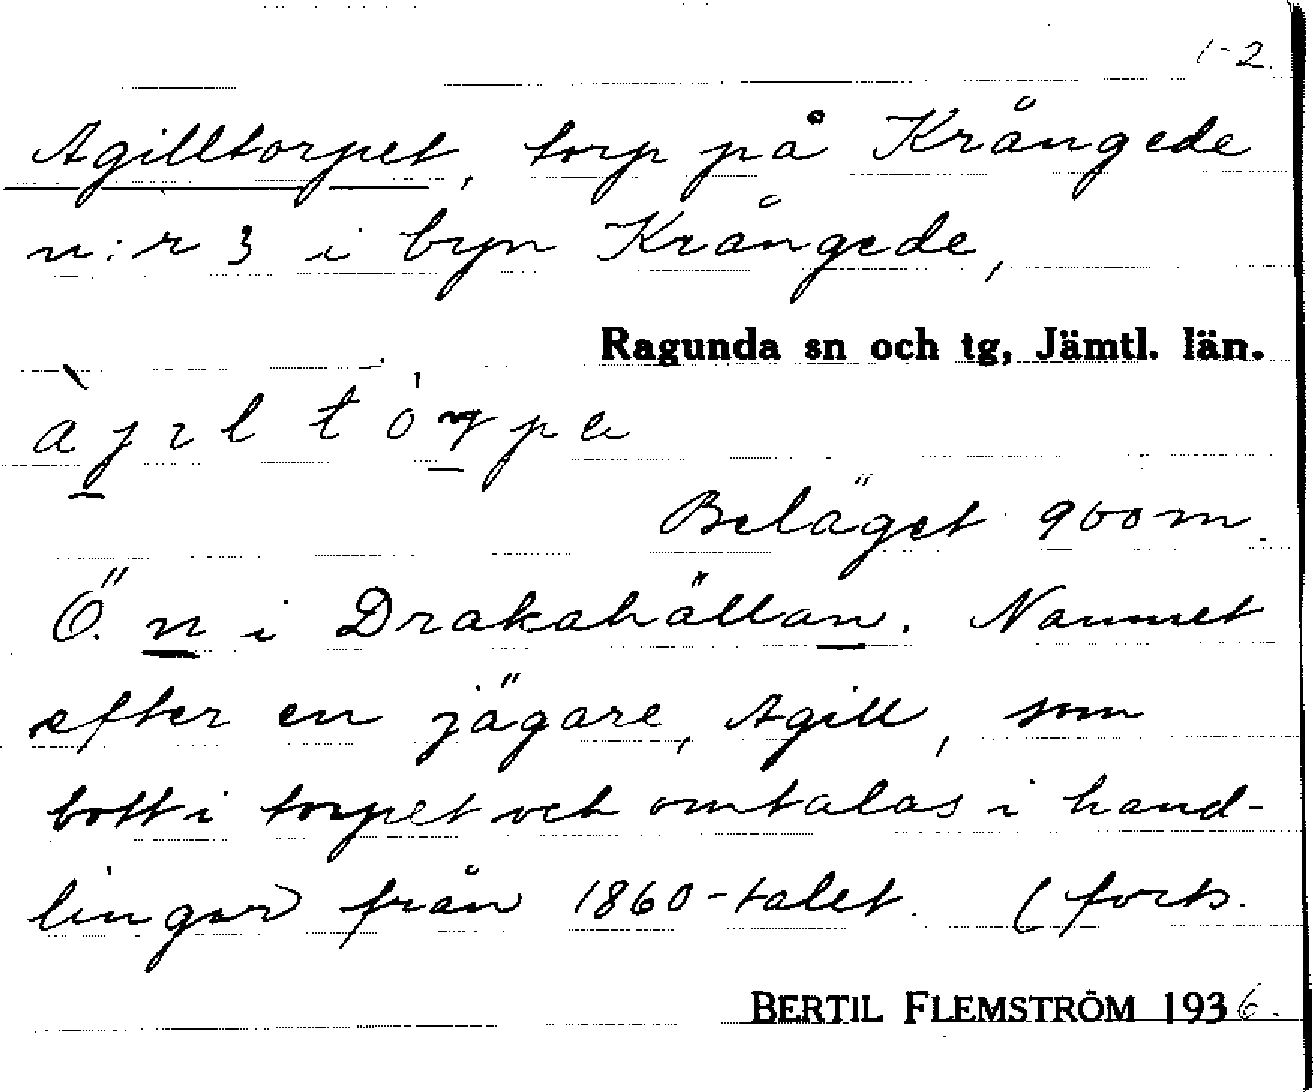 1-2.
Agilltorpet, torp på Krångede
n:r 3 i byn Krångede,
Ragunda sn och tg, Jämtl. län.
Beläget 900 m
Ö. n i Drakahällan. Namnet
efter en jägare, Agill, som
bott i torpet och omtalas i hand-
lingar från 1860-talet. (forts.
BERTIL FLEMSTRÖM 1936.